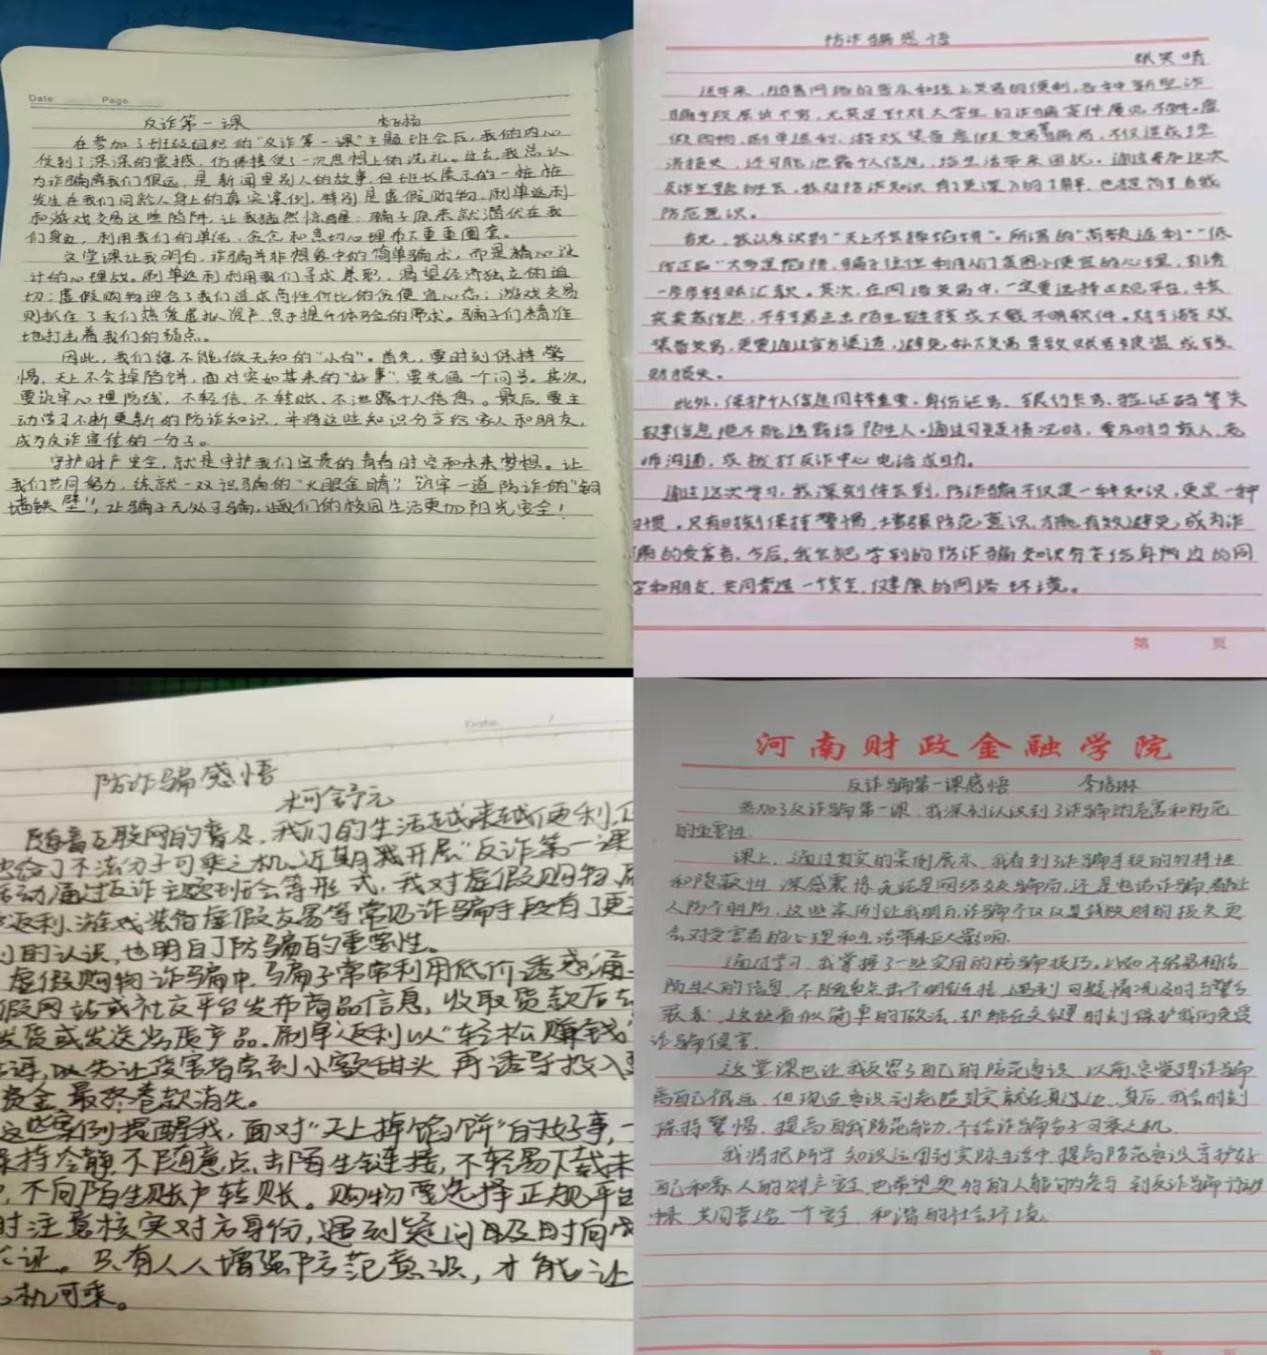 Date Page
反诈第一课
在参加了班级组织的"反诈第一课"主题班会后,我的内心
受到了深深的震撼,仿佛接受了一次思想上的洗礼。过去,我总认
为诈骗离我们很远,是新闻里别人的故事,但班长展示的一桩桩
发生在我们同龄人身上的真实案例,特别是虚假购物、刷单返利
和游戏交易这些陷阱,让我猛然惊醒:骗子原来就潜伏在我
们身边,利用我们的单纯、贪念和急切心理布下重重圈套。
这堂课让我明白,诈骗并非想象中的简单骗术,而是精心设
计的心理战。刷单返利利用我们寻求兼职、渴望经济独立的迫
切;虚假购物迎合了我们追求高性价比的贪便宜心态;游戏交易
则抓住了我们热爱虚拟资产、急于提升体验的需求。骗子们精准
地打击着我们的弱点。
因此,我们绝不能做无知的"小白"。首先,要时刻保持警
惕,天上不会掉馅饼,面对突如其来的"好事",要先画一个问号。其次,
要筑牢心理防线,不轻信、不转账、不泄露个人信息。最后,要主
动学习不断更新的防诈知识,并将这些知识分享给家人和朋友,
成为反诈宣传的一分子。
守护财产安全,就是守护我们宝贵的青春时光和未来梦想。让
我们共同努力,练就一双识骗的"火眼金睛",筑牢一道防诈的"铜
墙铁壁",让骗子无处可骗,让我们的校园生活更加阳光安全!
防诈骗感悟
张笑晴
近年来,随着网络的普及和线上交易的便利,各种新型诈
骗手段层出不穷,尤其是针对大学生的诈骗案件屡见不鲜。虚
假购物、刷单返利、游戏装备虚假交易等骗局,不仅造成经
济损失,还可能泄露个人信息,给生活带来困扰。通过参加这次
反诈主题班会,我对防诈知识有了更深入的了解,也提高了自我
防范意识。
首先,我认识到"天上不会掉馅饼"。所谓的"高额返利""低
价正品"大多是陷阱,骗子往往利用人们贪图小便宜的心理,引诱
一步步转账汇款。其次,在网络交易中,一定要选择正规平台,核
实卖家信息,不轻易点击陌生链接或下载不明软件。对于游戏
装备交易,更要通过官方渠道,避免私下交易导致账号被盗或钱
财损失。
此外,保护个人信息同样重要。身份证号、银行卡号、验证码等关
键信息绝不能透露给陌生人。遇到可疑情况时,要及时与家人、老
师沟通,或拨打反诈中心电话求助。
通过这次学习,我深刻体会到,防诈骗不仅是一种知识,更是一种
习惯。只有时刻保持警惕,增强防范意识,才能有效避免成为诈
骗的受害者。今后,我会把学到的防诈骗知识分享给身边的同
学和朋友,共同营造一个安全、健康的网络环境。
第 页
Date. /
防诈骗感悟
柯舒元
随着互联网的普及,我们的生活越来越便利,但
也给了不法分子可乘之机。近期我开展"反诈第一课
活动通过反诈主题班会等形式,我对虚假购物、刷
单返利、游戏装备虚假交易等常见诈骗手段有了更深
刻的认识,也明白了防骗的重要性。
虚假购物诈骗中,骗子常常利用低价诱惑,通
假网站或社交平台发布商品信息,收取货款后
发货或发送劣质产品。刷单返利以"轻松赚钱"
,以先让受害者尝到小额甜头,再诱导投入
资金,最终卷款消失。
这些案例提醒我,面对"天上掉馅饼"的好事,一
保持冷静,不随意点击陌生链接,不轻易下载未
,不向陌生账户转账。购物要选择正规平台
时注意核实对方身份,遇到疑问及时向
证。只有人人增强防范意识,才能让
机可乘。
河南财政金融学院
反诈骗第一课感悟 李培琳
参加了反诈骗第一课,我深刻认识到了诈骗的危害和防范
的重要性。
课上,通过真实的案例展示,我看到了诈骗手段的多样性
和隐蔽性,深感震惊。无论是网络交友骗局,还是电话诈骗,都让
人防不胜防,这些案例让我明白,诈骗不仅仅是钱财的损失,更
会对受害者的心理和生活带来巨大影响。
通过学习,我掌握了一些实用的防骗技巧。比如不轻易相信
陌生人的信息,不随意点击不明链接,遇到可疑情况及时与警方
联系,这些看似简单的做法,却能在关键时刻保护我们免受
诈骗侵害。
这堂课也让我反思了自己的防范意识,以前,总觉得诈骗
离自己很远,但现在意识到危险其实就在身边,今后,我会时刻
保持警惕,提高自我防范能力,不给诈骗分子可乘之机。
我将把所学知识运用到实际生活中,提高防范意识,守护好
自己和家人的财产安全,也希望更多的人能够参与到反诈骗行动
中来,共同营造一个安全、和谐的社会环境。
第 页